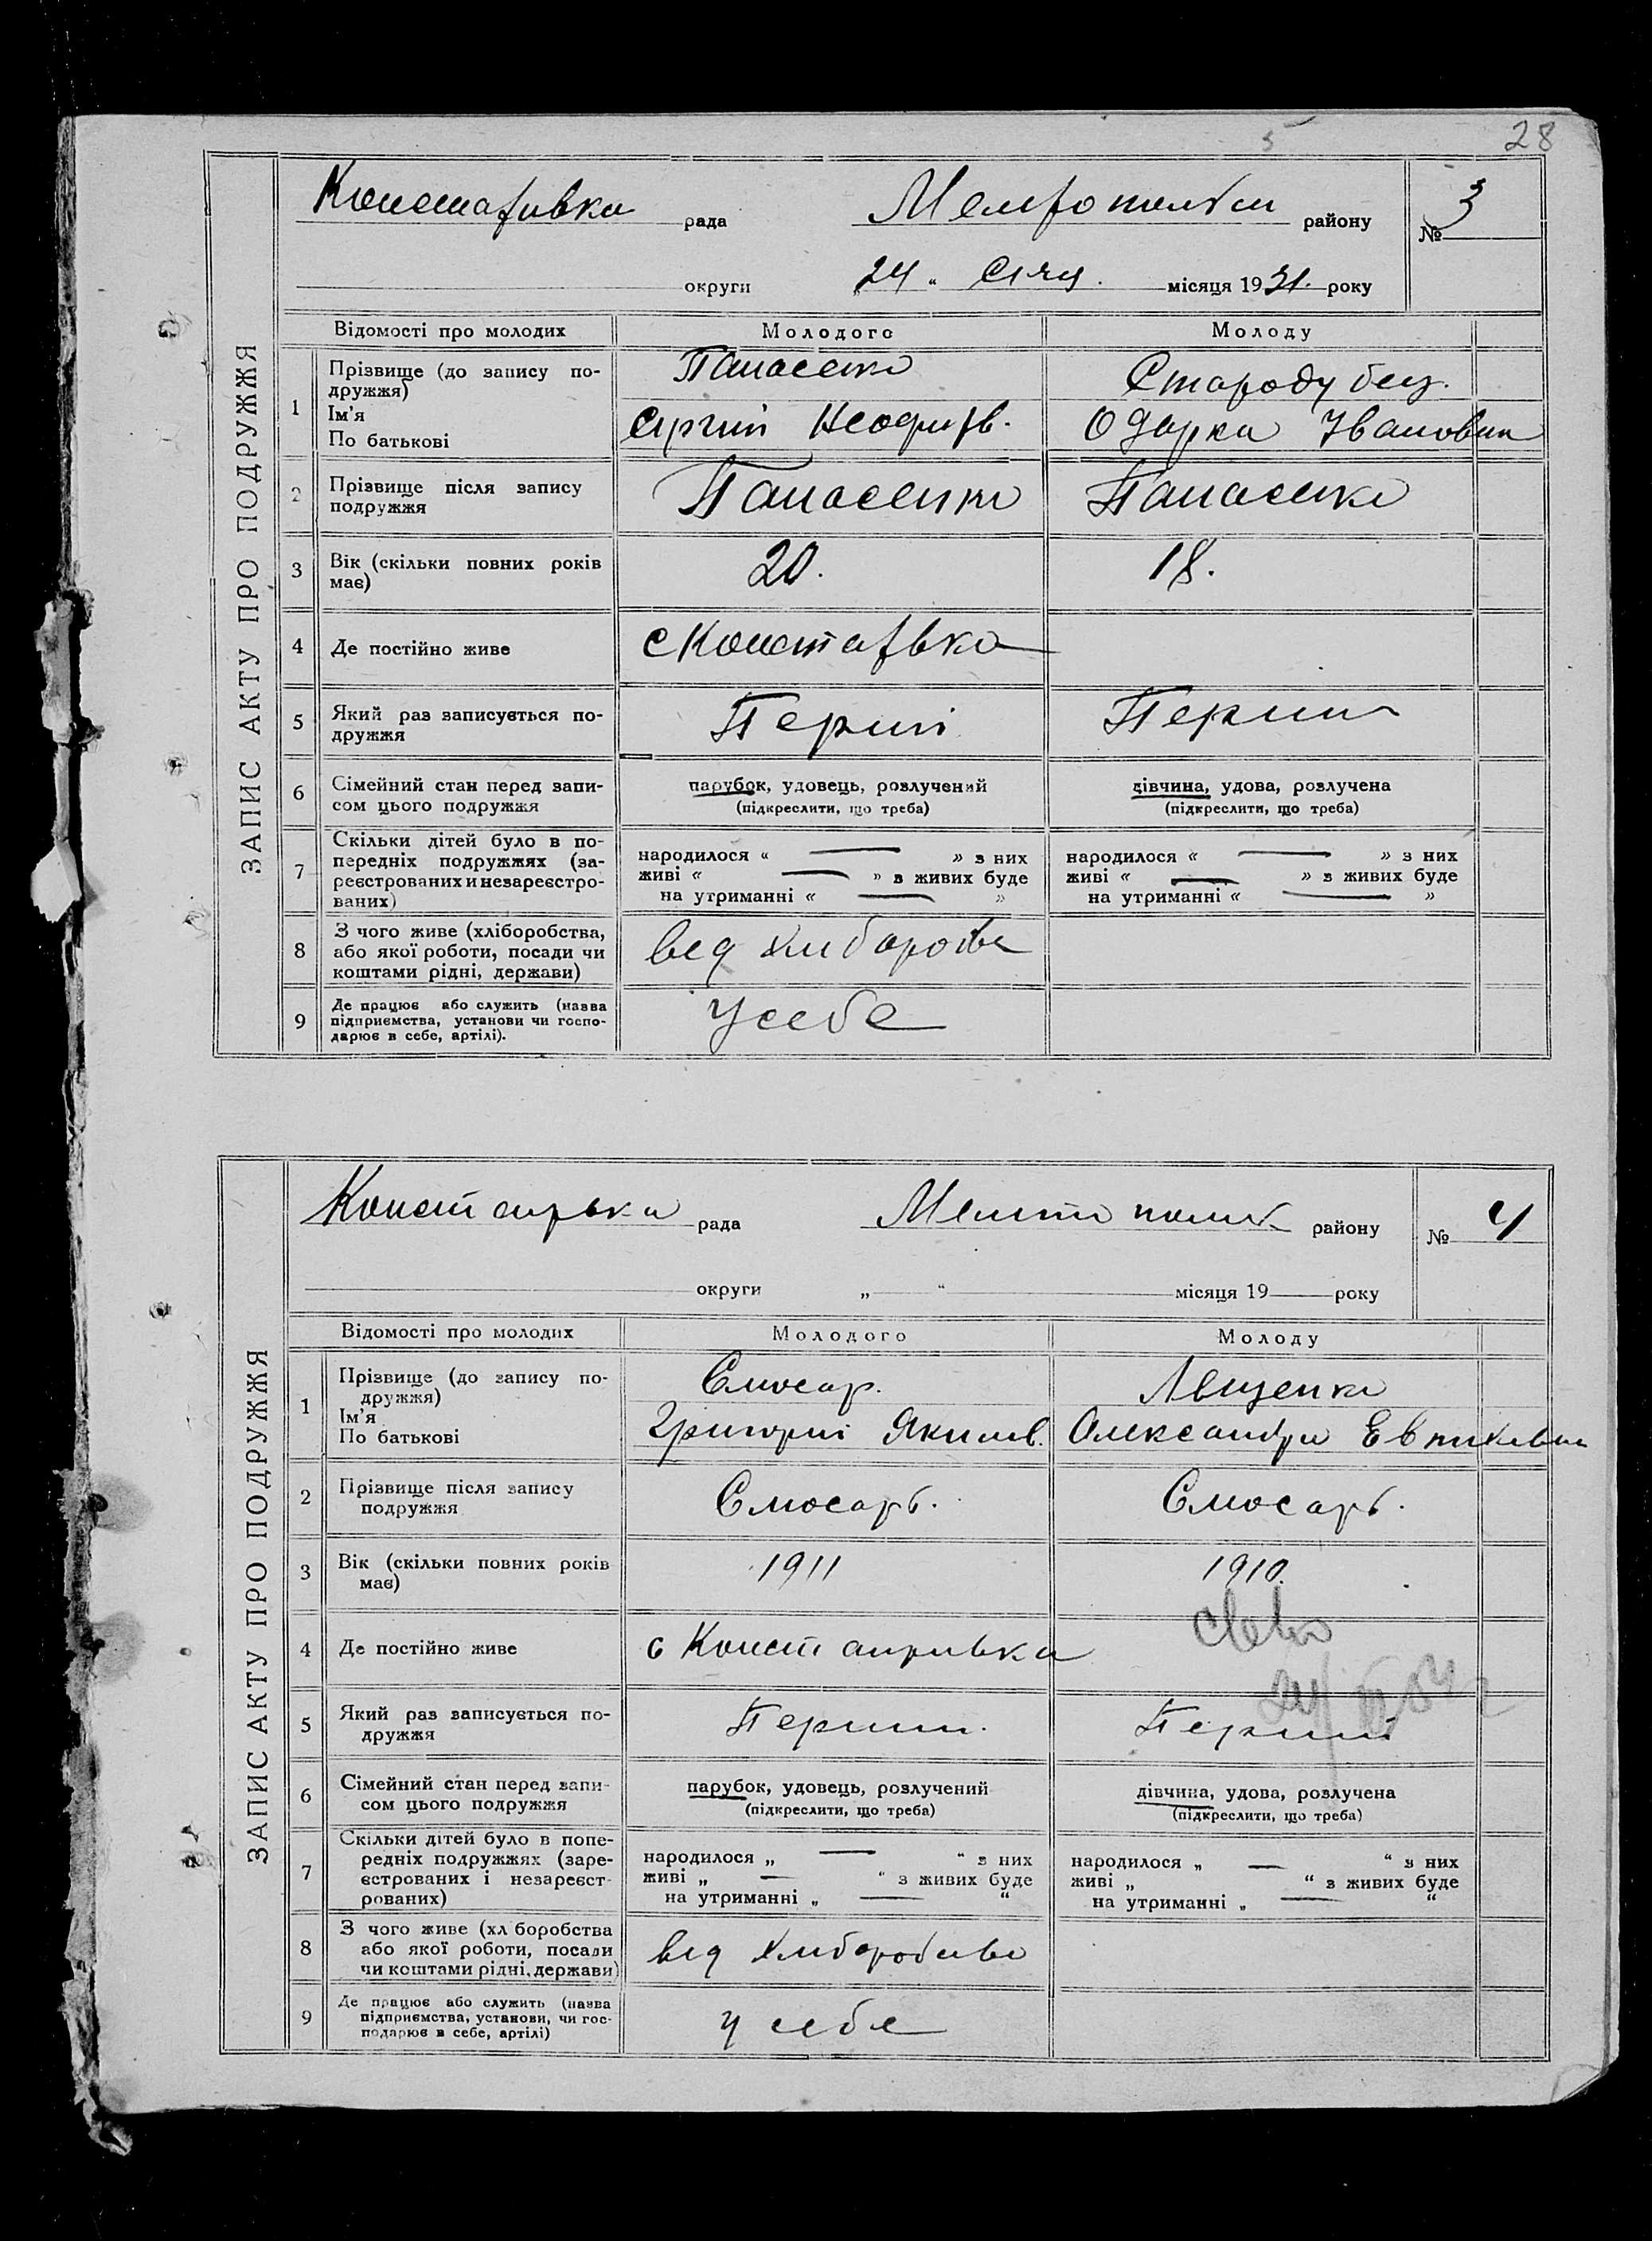 28
5
ЗАПИС АКТУ ПРО ПОДРУЖЖЯ
рада
району
№ 3
округи „24“ Січ. місяця 1931. року
Відомості про молодих Молодого Молоду
1 Прізвище (до запису подружжя) Панасенко Стародубец.
Ім'я
По батькові Сергій Одарка Іванован
2 Прізвище після запису подружжя Панасенко Панасенко
3 Вік (скільки повних років має) 20. 18.
4 Де постійно живе
5 Який раз записується подружжя Перший Перший
6 Сімейний стан перед записом цього подружжя парубок, удовець, розлучений (підкреслити, що треба) дівчина, удова, розлучена (підкреслити, що треба)
7 Скільки дітей було в попередніх подружжях (зареєстрованих и незареєстрованих) народилося « — » з них живі « — » з живих буде на утриманні « — » народилося « — » з них живі « — » з живих буде на утриманні « — »
8 З чого живе (хліборобства, або якої роботи, посади чи коштами рідні, держави)
9 Де працює або служить (назва підприємства, установи чи господарює в себе, артілі). У себе
ЗАПИС АКТУ ПРО ПОДРУЖЖЯ
рада
району
№ 4
округи „ “ місяця 19 року
Відомості про молодих Молодого Молоду
1 Прізвище (до запису подружжя) Слюсар. Лященко
Ім'я
По батькові Григорій Якимов. Александра
2 Прізвище після запису подружжя Слюсарь. Слюсарь.
3 Вік (скільки повних років має) 1911 1910.
4 Де постійно живе
5 Який раз записується подружжя Перший. Перший
6 Сімейний стан перед записом цього подружжя парубок, удовець, розлучений (підкреслити, що треба) дівчина, удова, розлучена (підкреслити, що треба)
7 Скільки дітей було в попередніх подружжях (зареєстрованих і незареєстрованих) народилося „ — “ з них живі „ — “ з живих буде на утриманні „ — “ народилося „ — “ з них живі „ “ з живих буде на утриманні „ — “
8 З чого живе (хл боробства або якої роботи, посади чи коштами рідні, держави)
9 Де працює або служить (назва підприємства, установи, чи господарює в себе, артілі) у себе